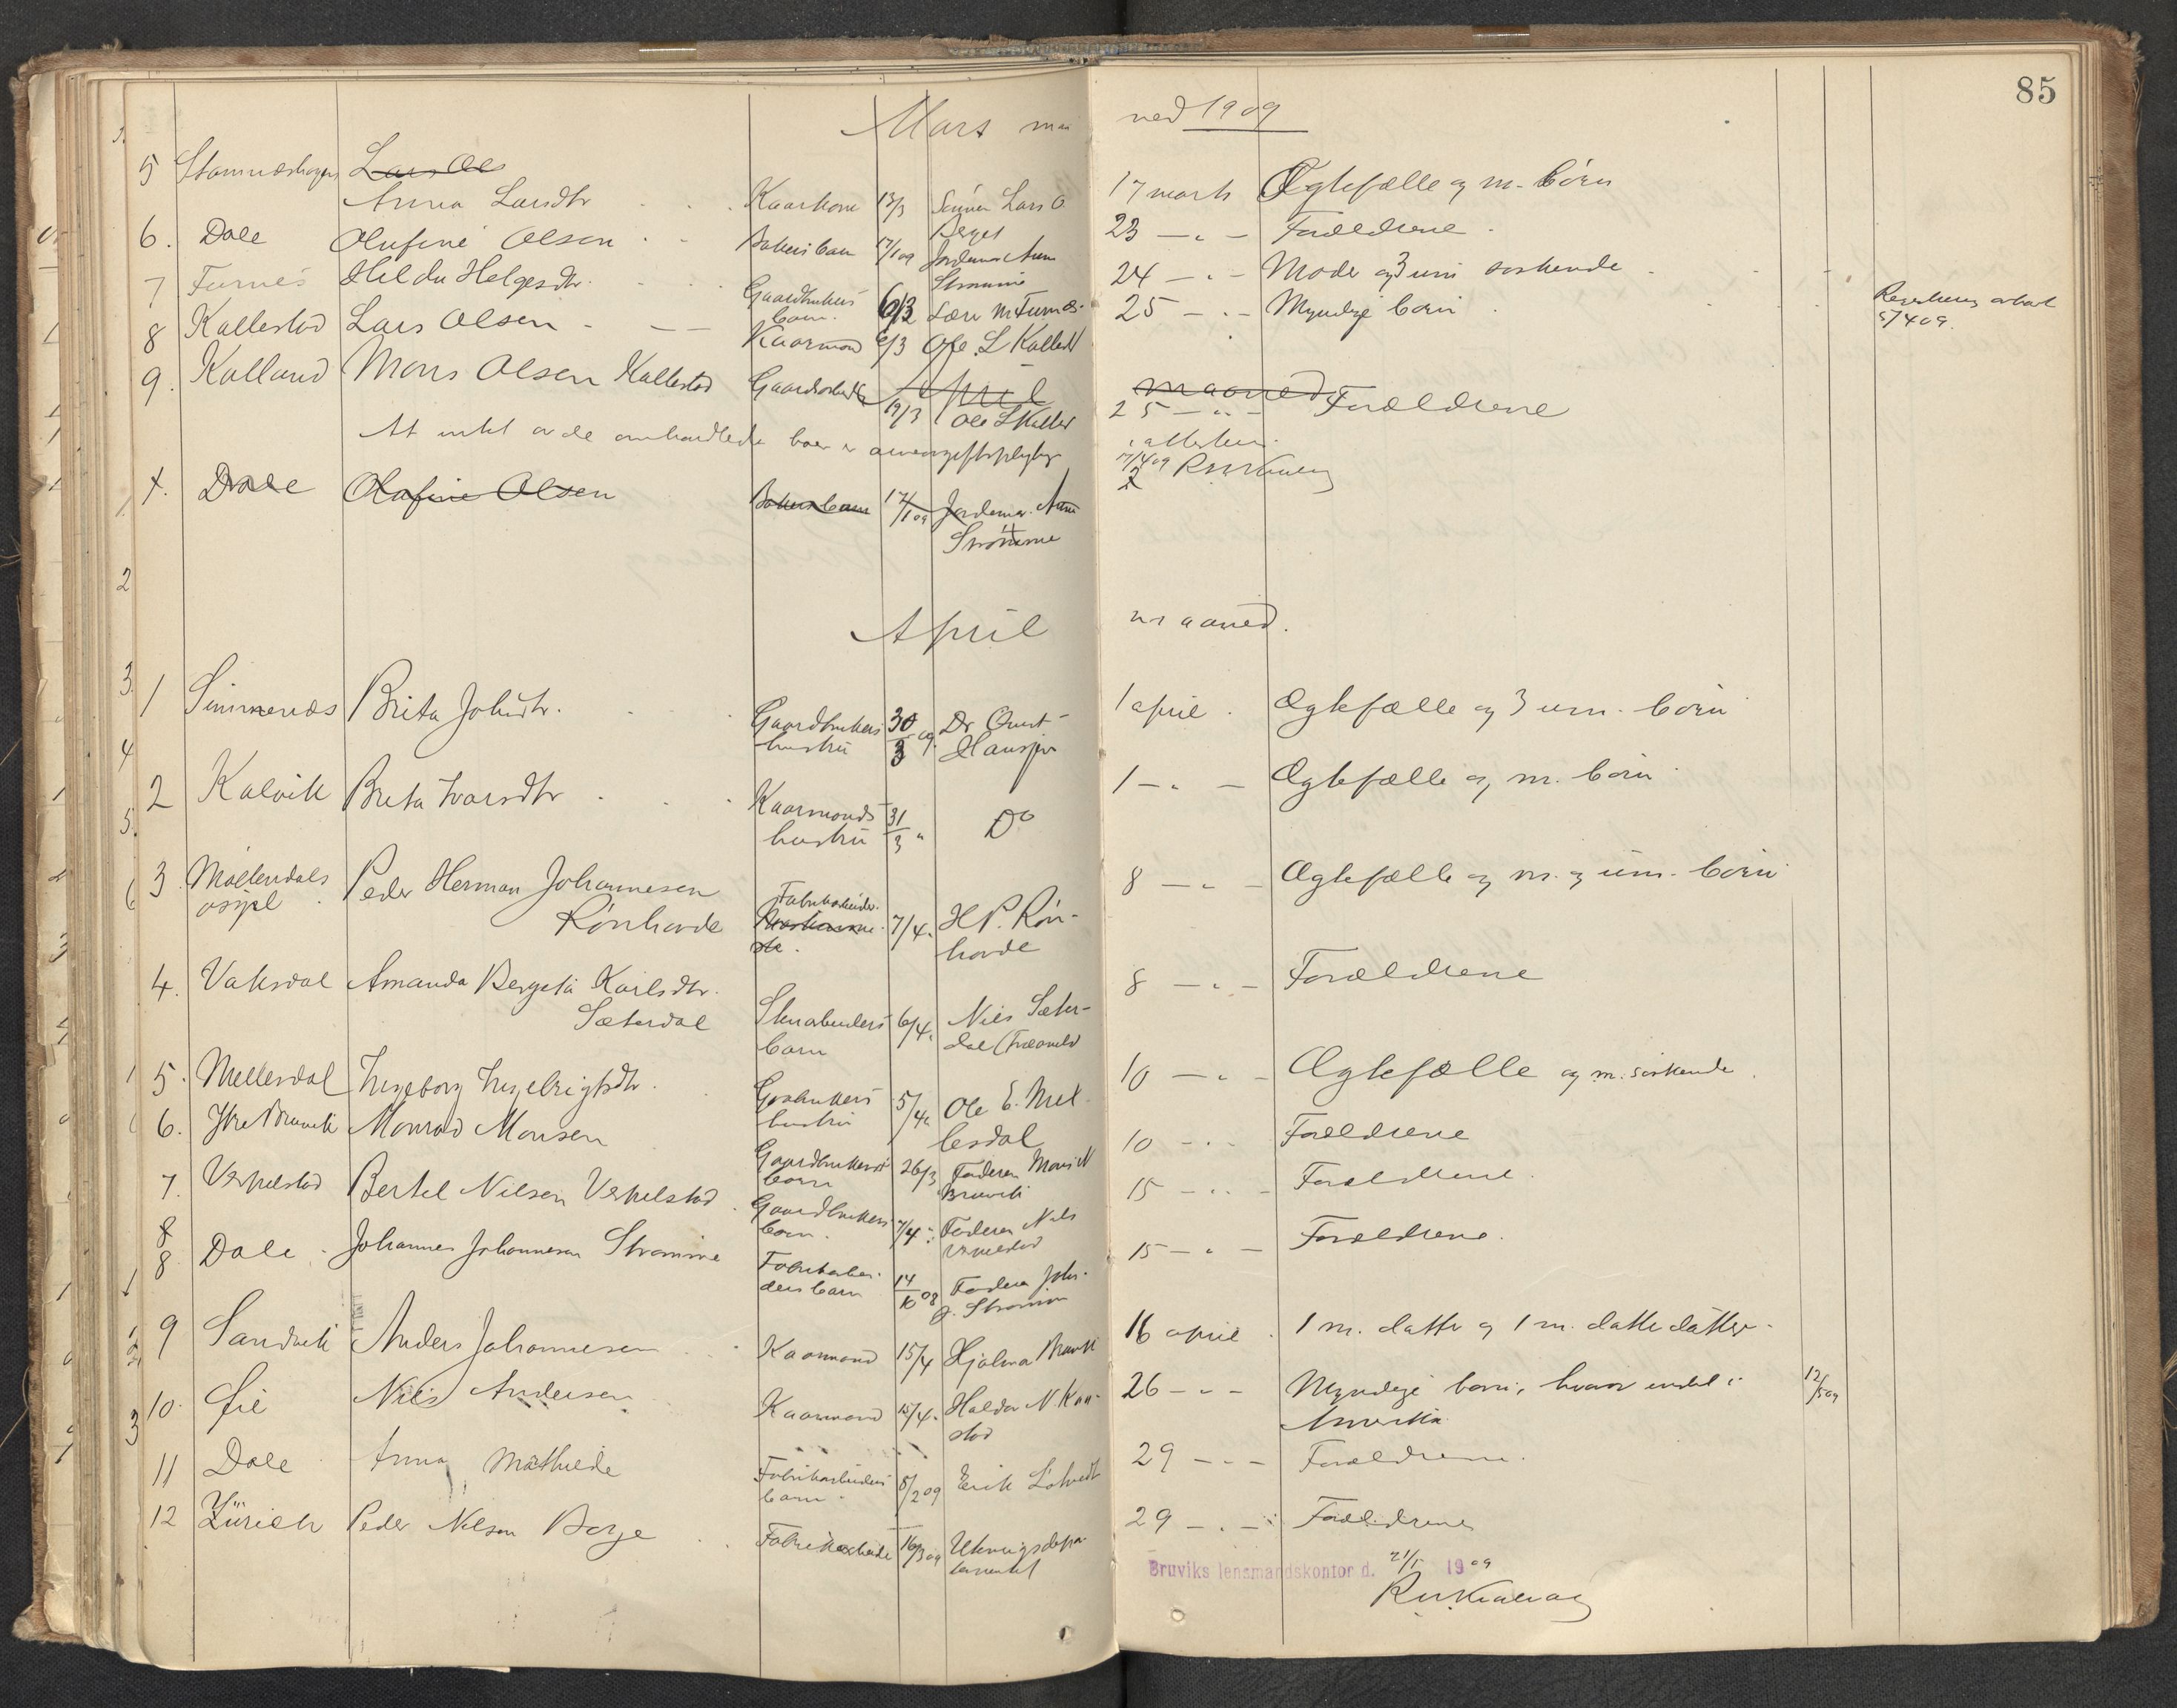 85
Mars maaned 1909
5 Stamneshagen Lars Ols
Anna Larsdtr Kaarkone 13/3 Sönnen Lars O. Berget 17 marts Ægtefælle og m. börn
6. Dale Olufine Olsen Bakers barn 17/1 09 Jordemor Anna Strömme 23 — " — Forældrene.
7 Furnes Hilda Helgesdtr. Gaardbrukers barn. 6/3 Lære M Furnes. 24 — " — Moder og 3 um söskende
8 Kallestad Lars Olsen Kaarmand 6/3 Ole L Kallest 25 — " — Myndige börn 5/4 09.
April maaned
9. Kalland Mons Olsen Kallestad Gaardarbeider 19/3 Ole L Kallest 25 — " — Forældrene
At intet av de anmeldte boer er arveavgiftspligtige attesteres.
17/4 09
X. Dale Olufine Olsen Bakers barn 17/1 09 Jordemor Anna Strömme
April maaned.
1 Simmenæs Brita Johsdtr. Gaardbrukers hustru 30/3 09. Dr Qvist Hausjør 1 april. Ægtefælle og 3 um. börn
2 Kalvik Brita Ivarsdtr Kaarmands hustru 31/3 " Do 1 — " — Ægtefælle og m. börn
3. Møllendals asyl. Peder Herman Johannesen Rönhovde Fabrikarbeider. 7/4 " H P. Rönhovde 8 — " — Ægtefælle og m. og um. börn
4. Vaksdal Amanda Bergeta Karlsdtr. Sæterdal Stenarbeiders barn 6/4 " Nils Sæterdal 8 — " — Forældrene
5. Mellesdal Ingeborg Ingebrigtsdtr. Grbrukers hustru 5/4 " Ole E. Mellesdal 10 — " — Ægtefælle og m. söskende.
6. Ytre Bruvik Monrad Monsen Gaardbrukers barn 26/3 Faderen Mons N Bruvik 10 — " — Forældrene
7. Vespelstad Bertel Nilsen Vespelstad Gaardbrukers barn. 7/4 " Faderen Nils Vespelstad 15 — " — Forældrene.
8 Dale Johannes Johannesen Strömme Fabrikarbeiders barn 14/10 08 Faderen Johs. J. Strömme 15 — " — Forældrene.
9 Sandvik Anders Johannesen Kaarmand 15/4 Hjalmar Bruvik 16 april. 1 m. datter og 1 m. datterdatter.
10. Øie Nils Andersen Kaarmand 15/4 " Haldor N. Kallestad 26 — " — Myndige barn, hvorav endel i Amerika. 12/5 09
11 Dale Anna Mathilde Fabrikarbeiders barn. 8/2 09 Erik Lökvedt 29 — " — Forældrene.
12 Zürich Peder Nilsen Borge Fabrikarbeider 16/3 09 Utenrigsdepartementet 29 — " — Forældrene
Bruviks lensmandskontor d. 21/5 1909